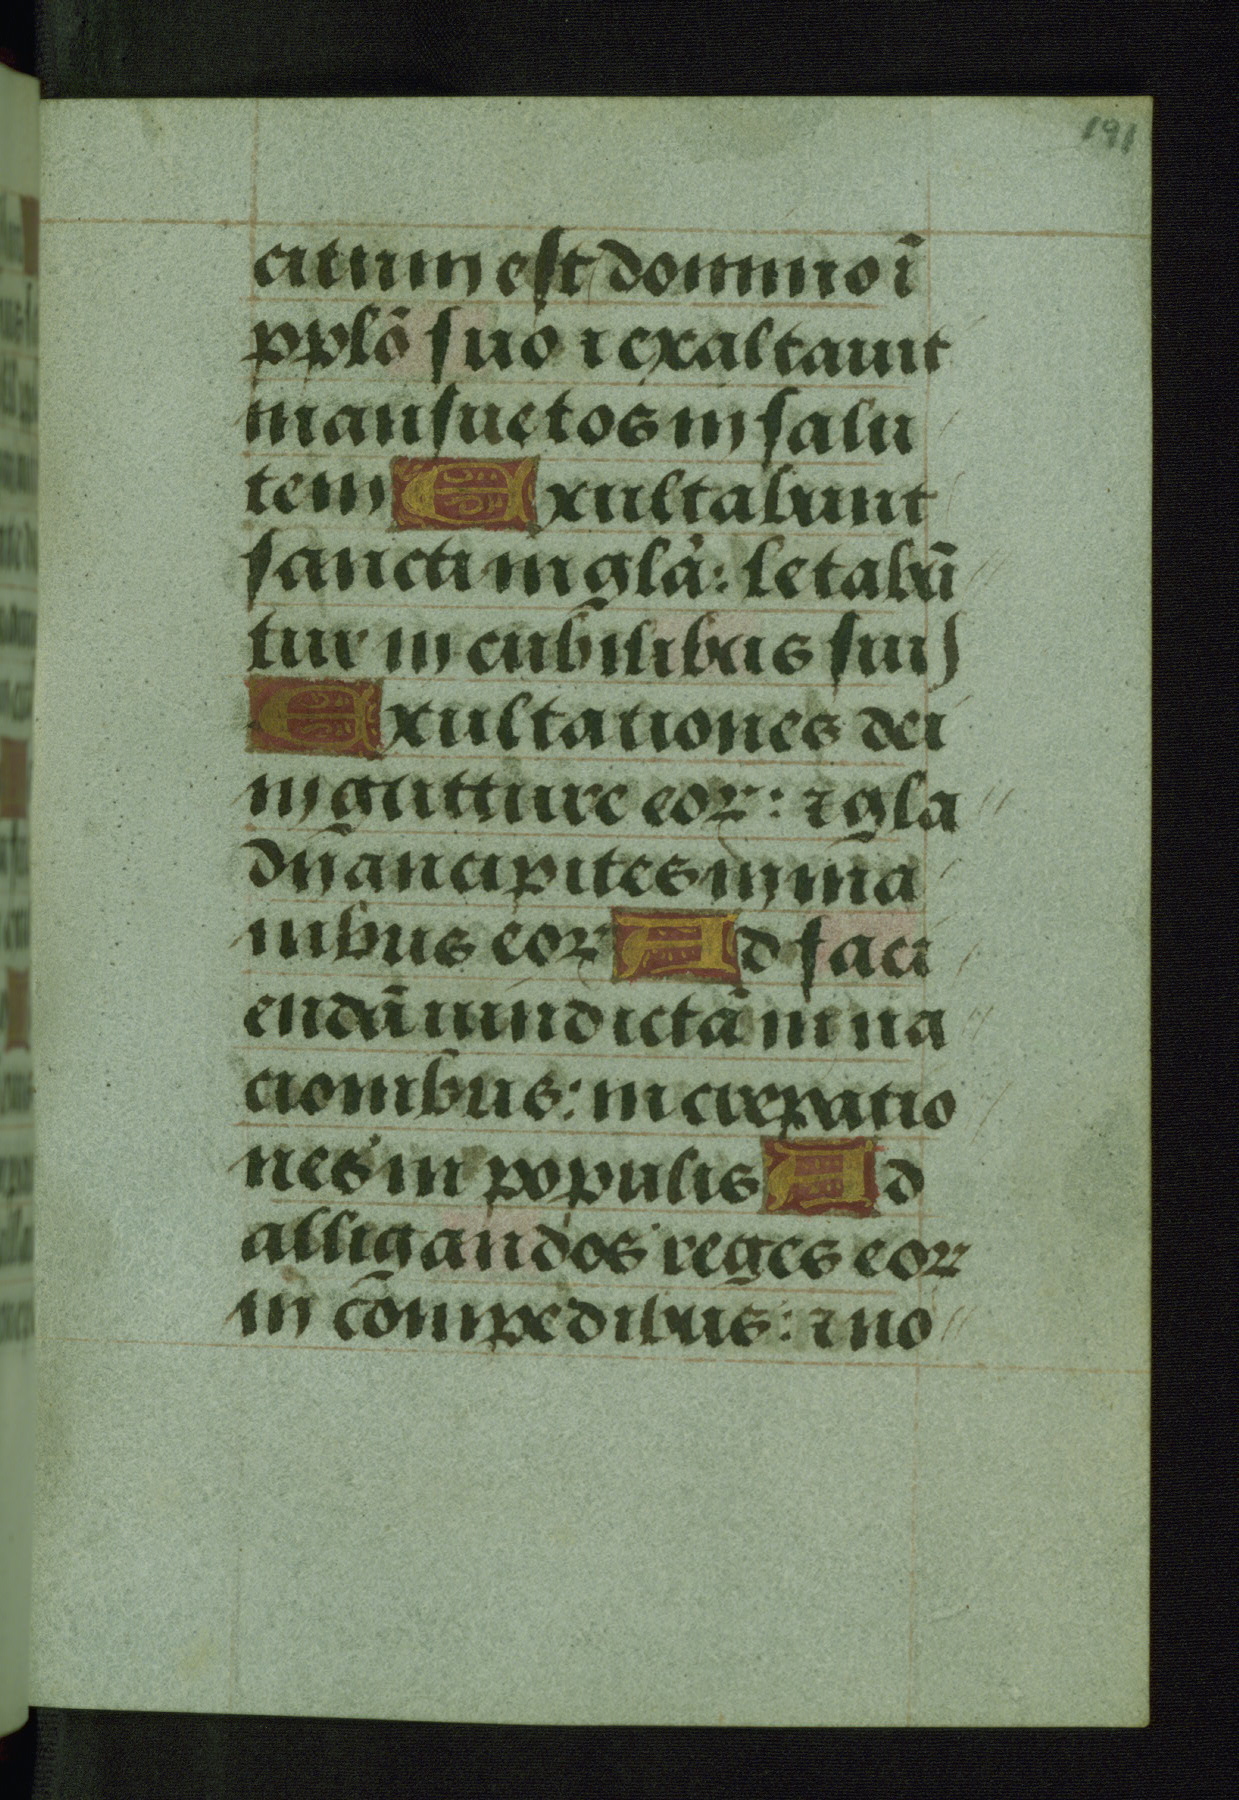 191
citum est domino ī
pplō suo ⁊ exaltauit
mansuetos in salu
tem Exultabunt
sancti in gl̄a: letabū
tur in cubilibus suis
Exultationes dei
in gutture eoꝝ: ⁊ gla
dii ancipites in ma
nibus eoꝝ Ad faci
endā uindictā in na
cionibus: increpatio
nes in populis Ad
alligandos reges eoꝝ
in cōmpedibus: ⁊ no